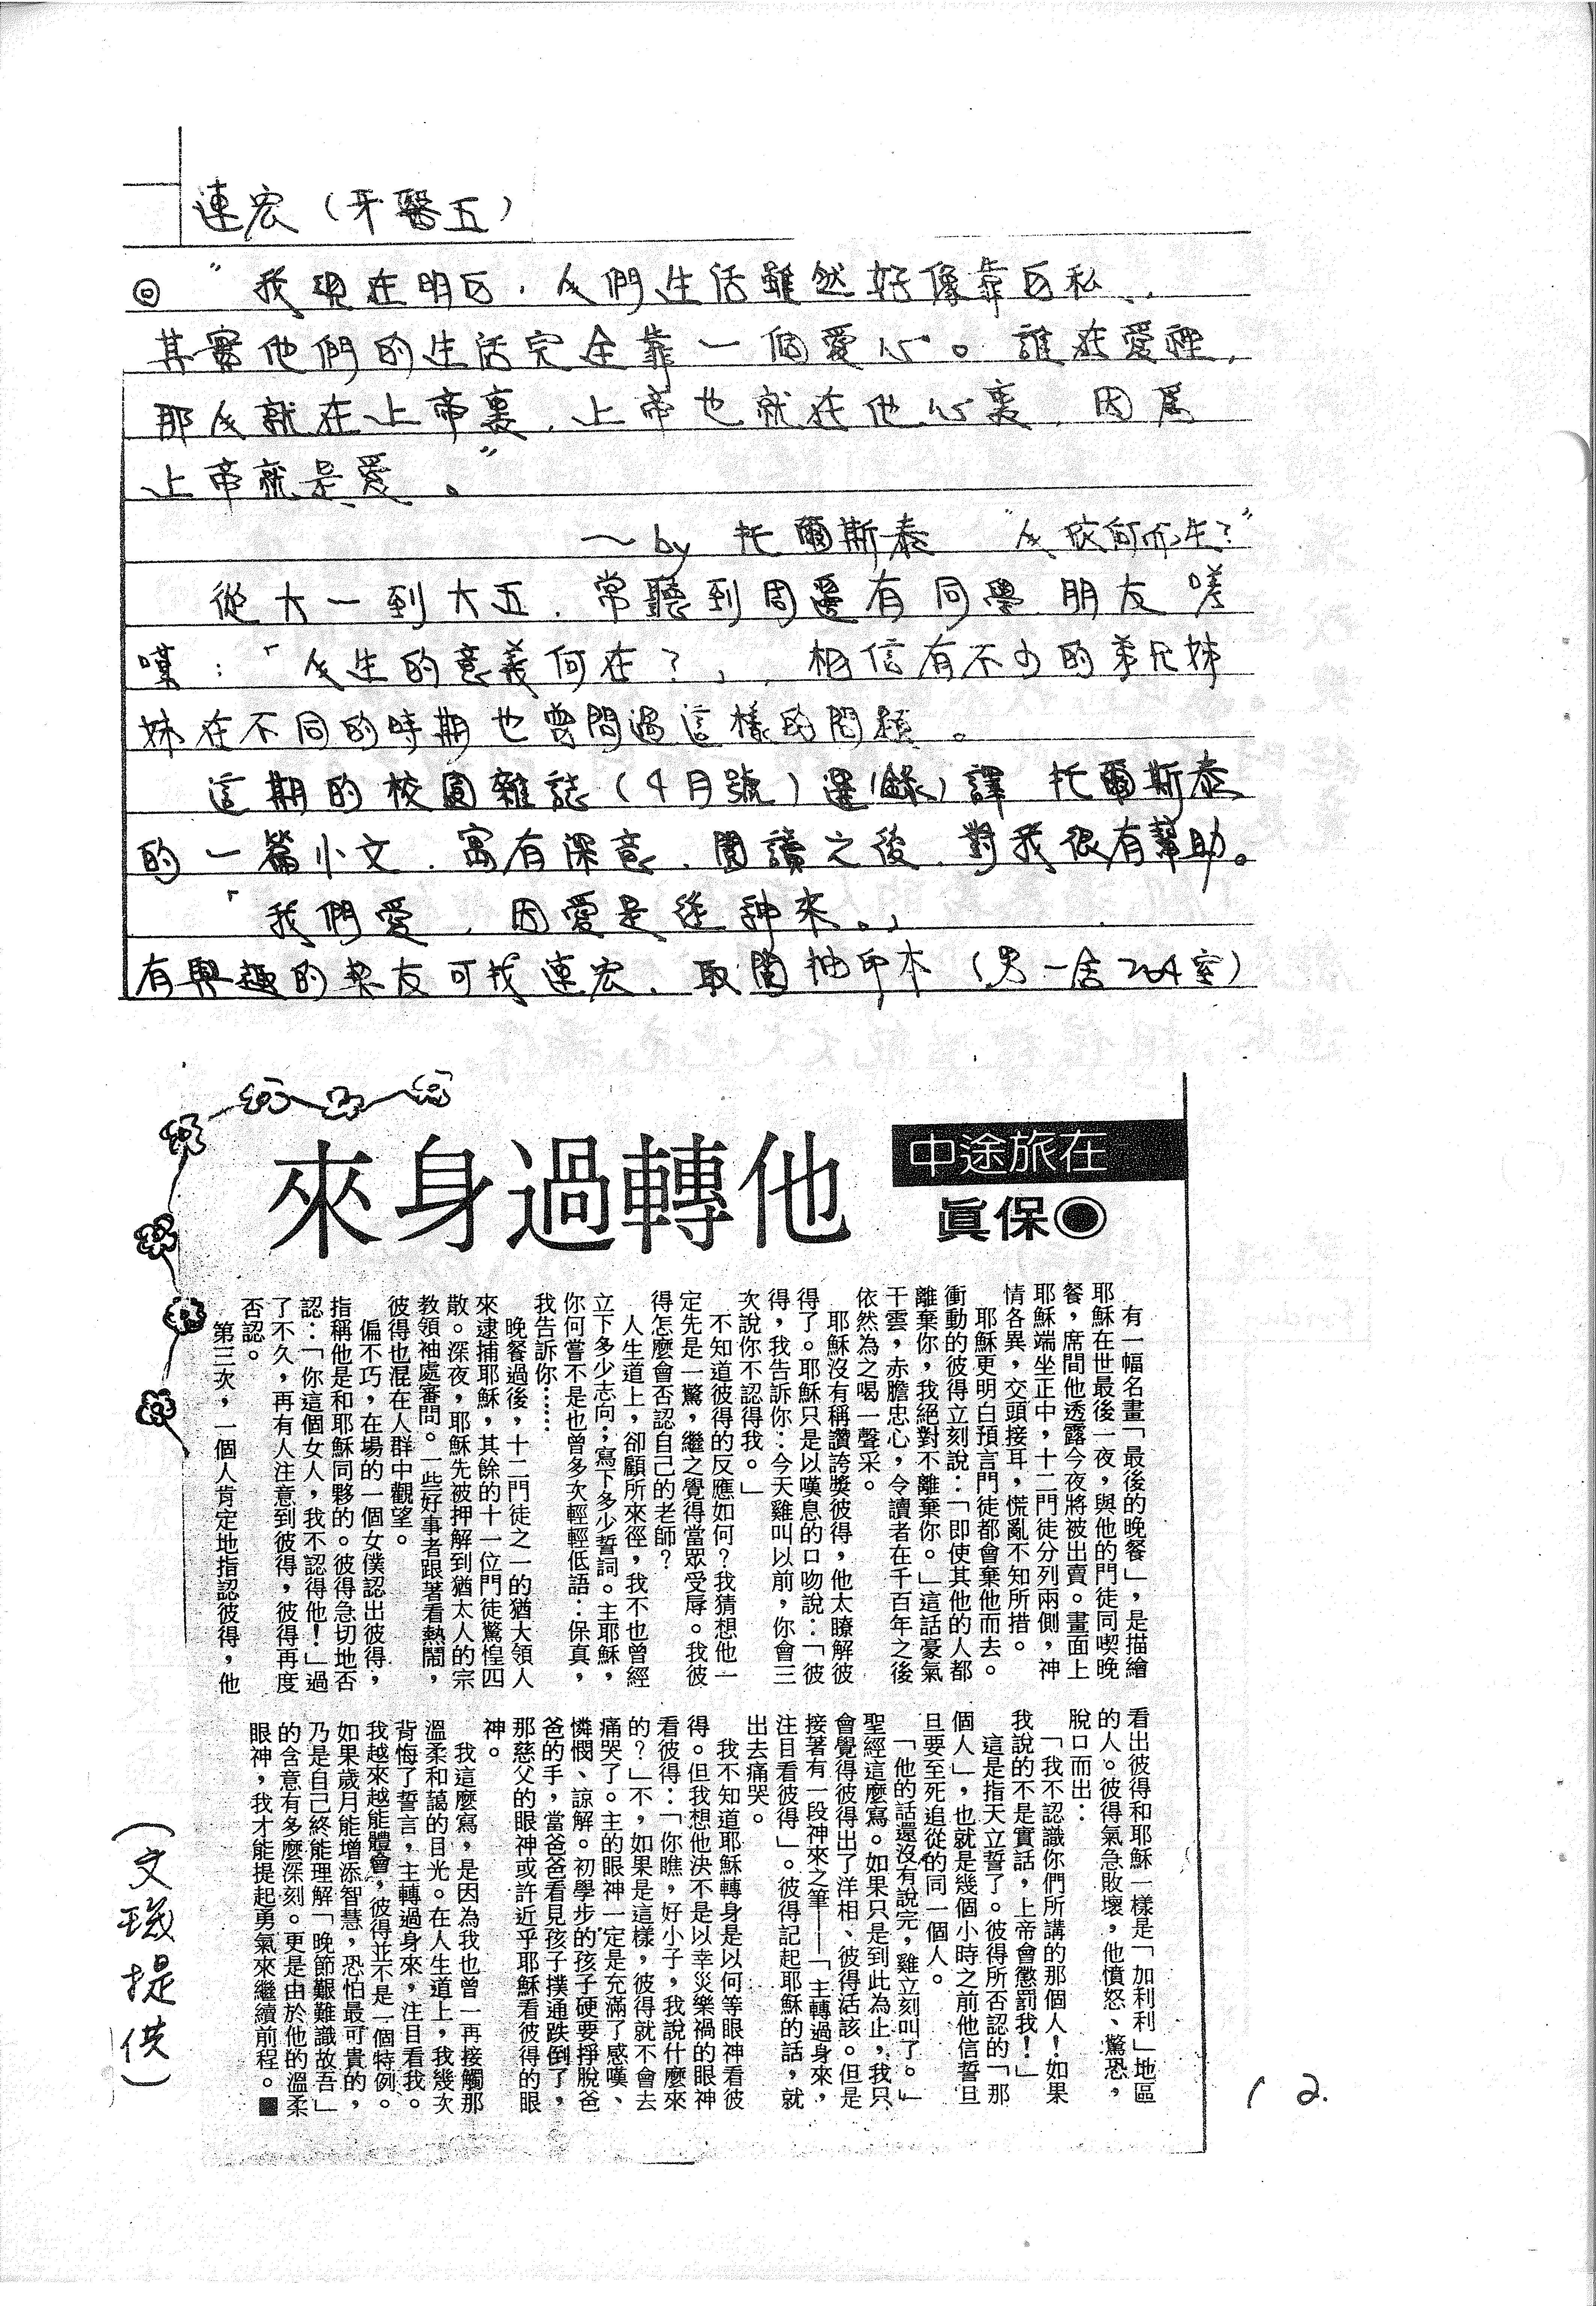 連宏（牙醫五）
◎ "我現在明白，人們生活雖然好像靠自私，
其實他們的生活完全靠一個愛心。誰在愛裡，
那人就在上帝裏，上帝也就在他心裏，因爲
上帝就是愛。"
～by 托爾斯泰 "人依何而生？"
從大一到大五，常聽到周邊有同學朋友嗟
嘆：「人生的意義何在？」，相信有不少的弟兄姊
妹在不同的時期也曾問過這樣的問題。
這期的校園雜誌（4月號）選（錄）譯 托爾斯泰
的一篇小文，寓有深意，閱讀之後，對我很有幫助。
「我們愛，因愛是從神來。」
有興趣的契友可找連宏，取閱抽印本（男一舍204室）
中途旅在
來身過轉他
眞保◉
有一幅名畫「最後的晚餐」，是描繪
耶穌在世最後一夜，與他的門徒同喫晚
餐，席間他透露今夜將被出賣。畫面上
耶穌端坐正中，十二門徒分列兩側，神
情各異，交頭接耳，慌亂不知所措。
耶穌更明白預言門徒都會棄他而去。
衝動的彼得立刻說：「即使其他的人都
離棄你，我絕對不離棄你。」這話豪氣
干雲，赤膽忠心，令讀者在千百年之後
依然為之喝一聲采。
耶穌沒有稱讚誇獎彼得，他太瞭解彼
得了。耶穌只是以嘆息的口吻說：「彼
得，我告訴你：今天雞叫以前，你會三
次說你不認得我。」
不知道彼得的反應如何？我猜想他一
定先是一驚，繼之覺得當眾受辱。我彼
得怎麼會否認自己的老師？
人生道上，卻顧所來徑，我不也曾經
立下多少志向；寫下多少誓詞。主耶穌，
你何嘗不是也曾多次輕輕低語：保真，
我告訴你……
晚餐過後，十二門徒之一的猶大領人
來逮捕耶穌，其餘的十一位門徒驚惶四
散。深夜，耶穌先被押解到猶太人的宗
教領袖處審問。一些好事者跟著看熱鬧，
彼得也混在人群中觀望。
偏不巧，在場的一個女僕認出彼得，
指稱他是和耶穌同夥的。彼得急切地否
認：「你這個女人，我不認得他！」過
了不久，再有人注意到彼得，彼得再度
否認。
第三次，一個人肯定地指認彼得，他
看出彼得和耶穌一樣是「加利利」地區
的人。彼得氣急敗壞，他憤怒、驚恐，
脫口而出：
「我不認識你們所講的那個人！如果
我說的不是實話，上帝會懲罰我！」
這是指天立誓了。彼得所否認的「那
個人」，也就是幾個小時之前他信誓旦
旦要至死追從的同一個人。
「他的話還沒有說完，雞立刻叫了。」
聖經這麼寫。如果只是到此為止，我只
會覺得彼得出了洋相、彼得活該。但是
接著有一段神來之筆——「主轉過身來，
注目看彼得」。彼得記起耶穌的話，就
出去痛哭。
我不知道耶穌轉身是以何等眼神看彼
得。但我想他決不是以幸災樂禍的眼神
看彼得：「你瞧，好小子，我說什麼來
的？」不，如果是這樣，彼得就不會去
痛哭了。主的眼神一定是充滿了感嘆、
憐憫、諒解。初學步的孩子硬要掙脫爸
爸的手，當爸爸看見孩子撲通跌倒了，
那慈父的眼神或許近乎耶穌看彼得的眼
神。
我這麼寫，是因為我也曾一再接觸那
溫柔和藹的目光。在人生道上，我幾次
背悔了誓言，主轉過身來，注目看我。
我越來越能體會，彼得並不是一個特例。
如果歲月能增添智慧，恐怕最可貴的，
乃是自己終能理解「晚節艱難識故吾」
的含意有多麼深刻。更是由於他的溫柔
眼神，我才能提起勇氣來繼續前程。■
（文璣提供）
12.